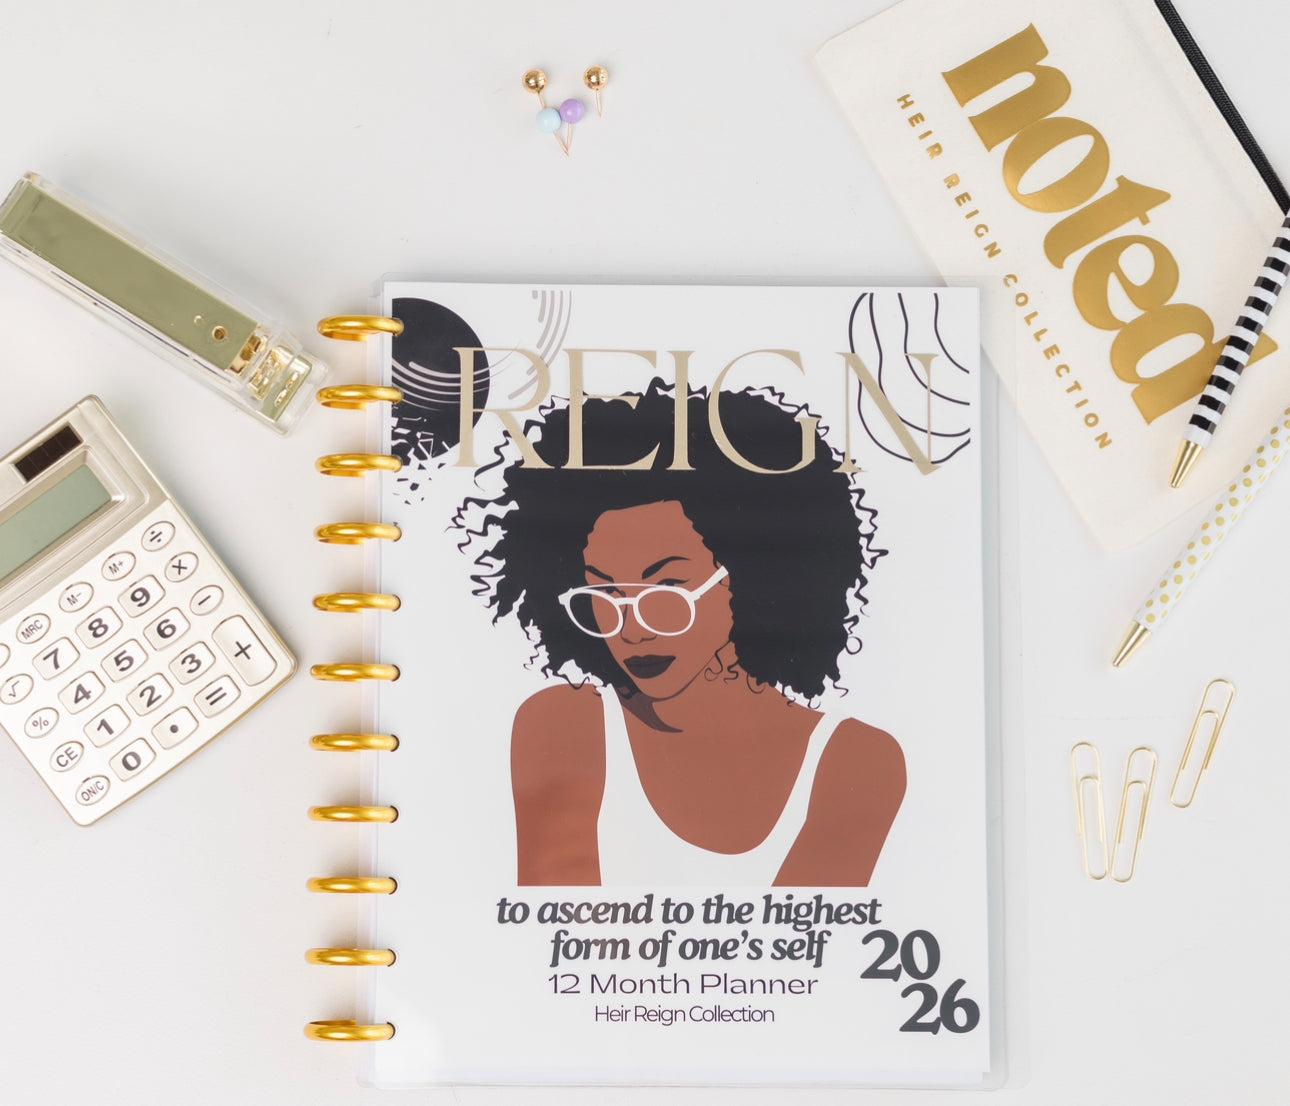 noted
HEIR REIGN COLLECTION
REIGN
to ascend to the highest
form of one's self
12 Month Planner
Heir Reign Collection
20
26
÷
M+ ×
M- 9 −
MRC 8 6
7 5 3 +
√ 4 2 =
% 1 •
CE 0
ON/C